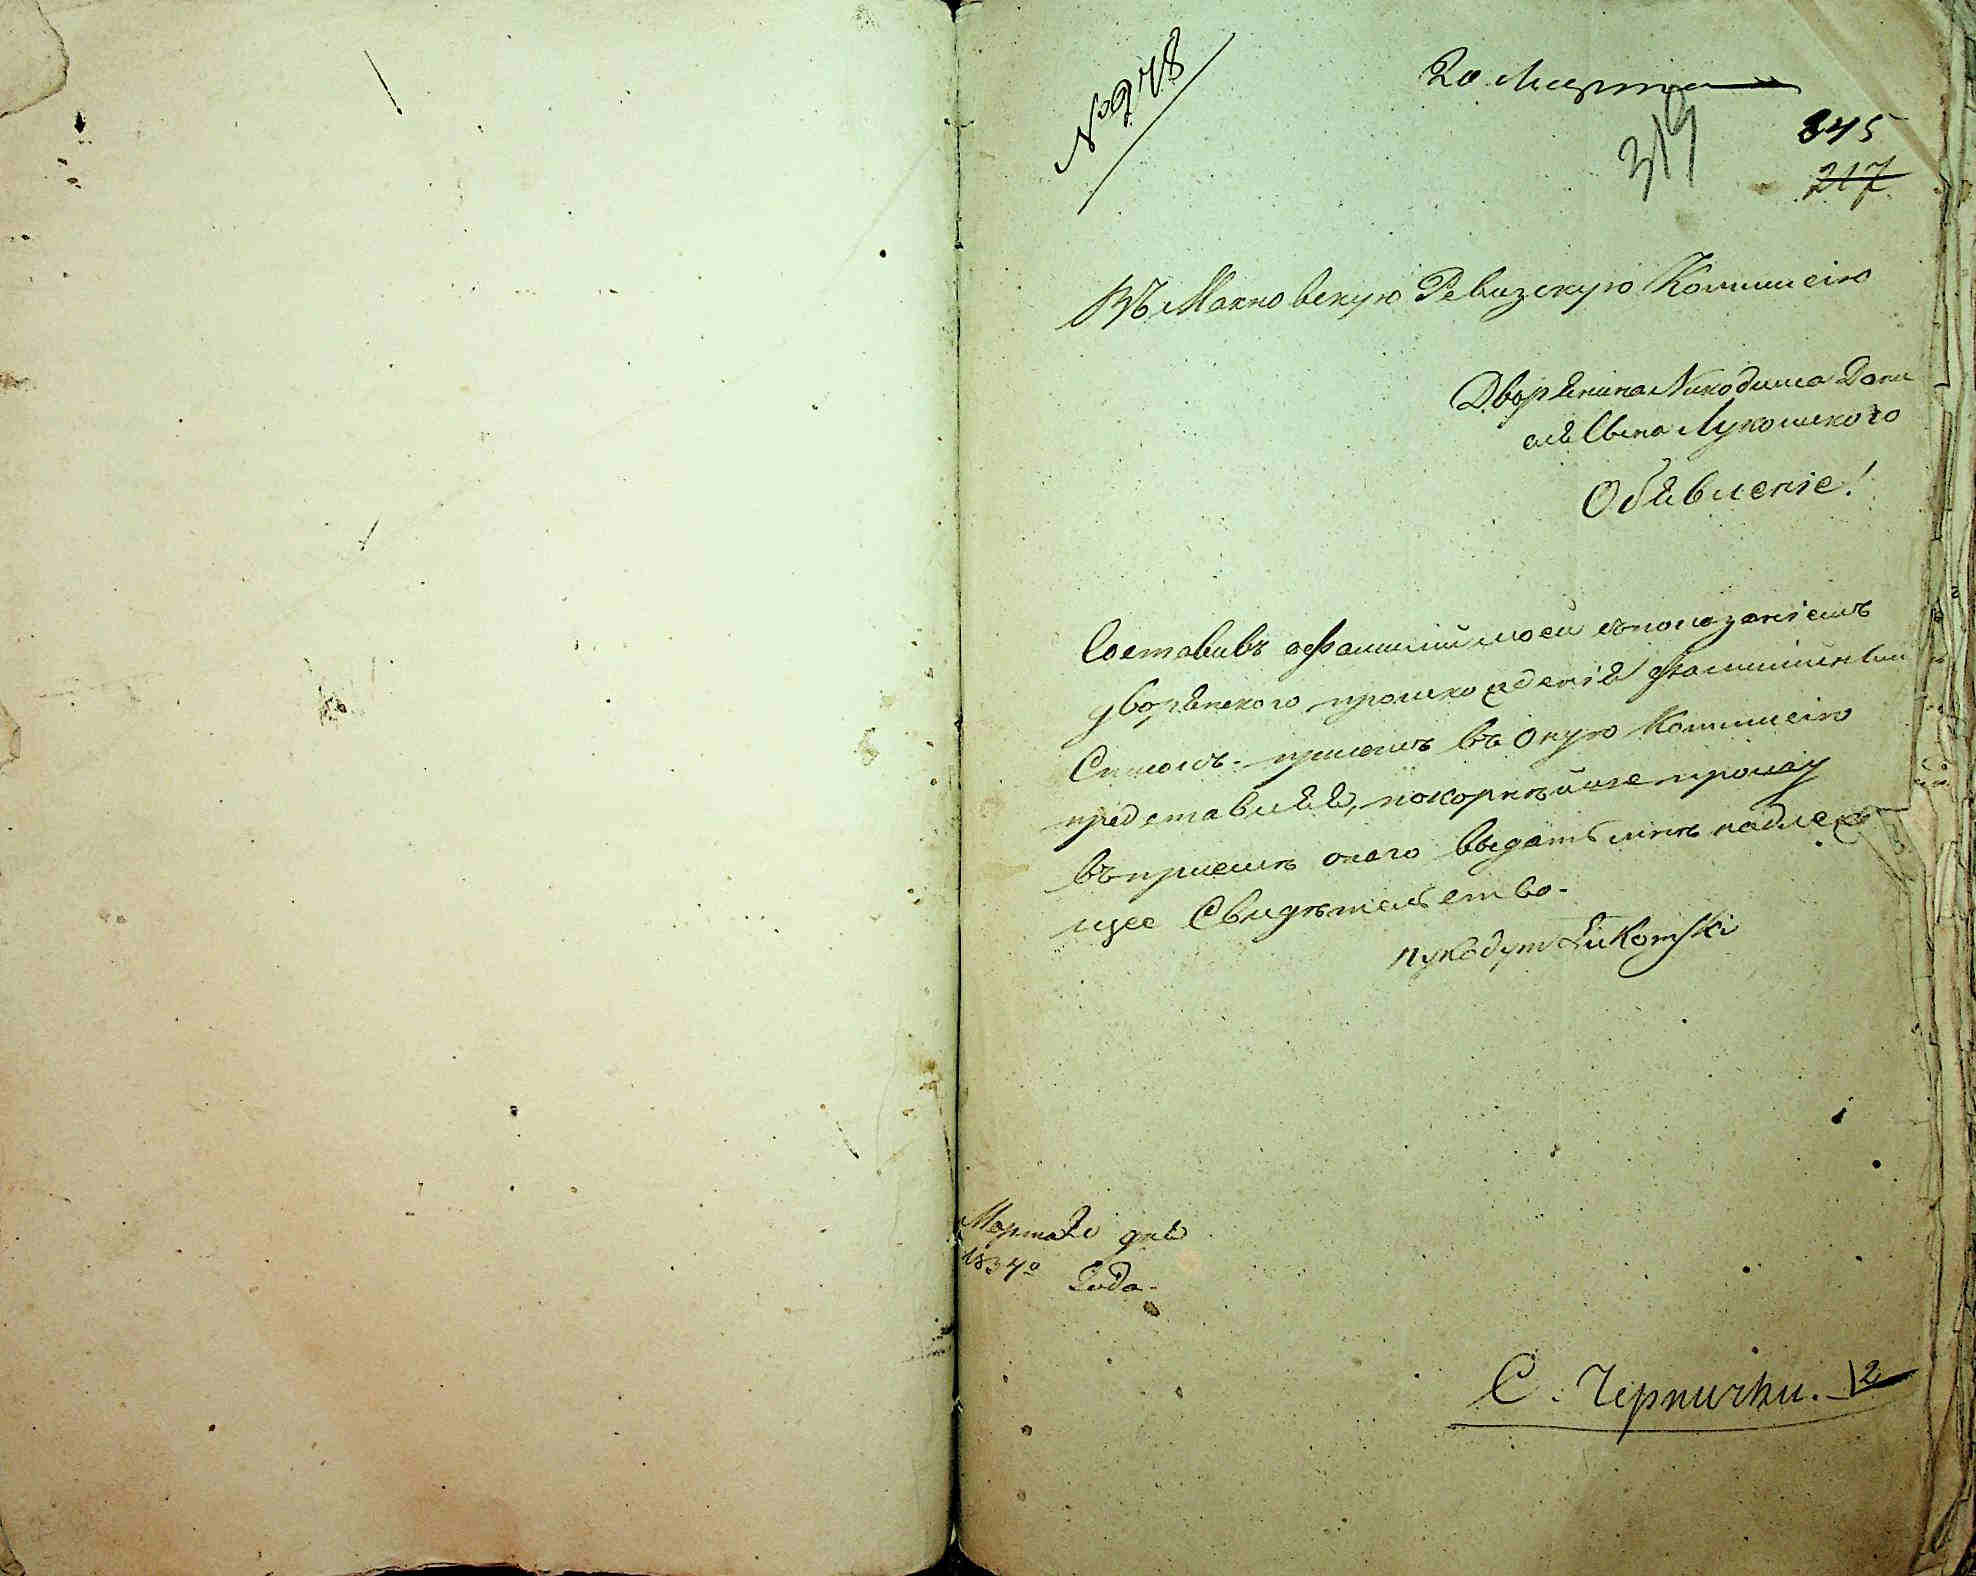 № 278
20 Марта
319
345
217
Въ Махновскую Ревизскую Коммисію
Дворянина Никодима Дани
еля Сына Лукомского
Объявленіе!
Составивъ о фамиліи моей съ показаніемъ
дворянского происхожденія фамилійный
Списокъ. при семъ въ оную Коммисію
представляя, покорнѣйше прошу
въ приемѣ оного выдать мнѣ надлежа
щее Свидѣтельство.
Łukomski
Марта 20 дня
1834го
Года.
С. Чернички. 12